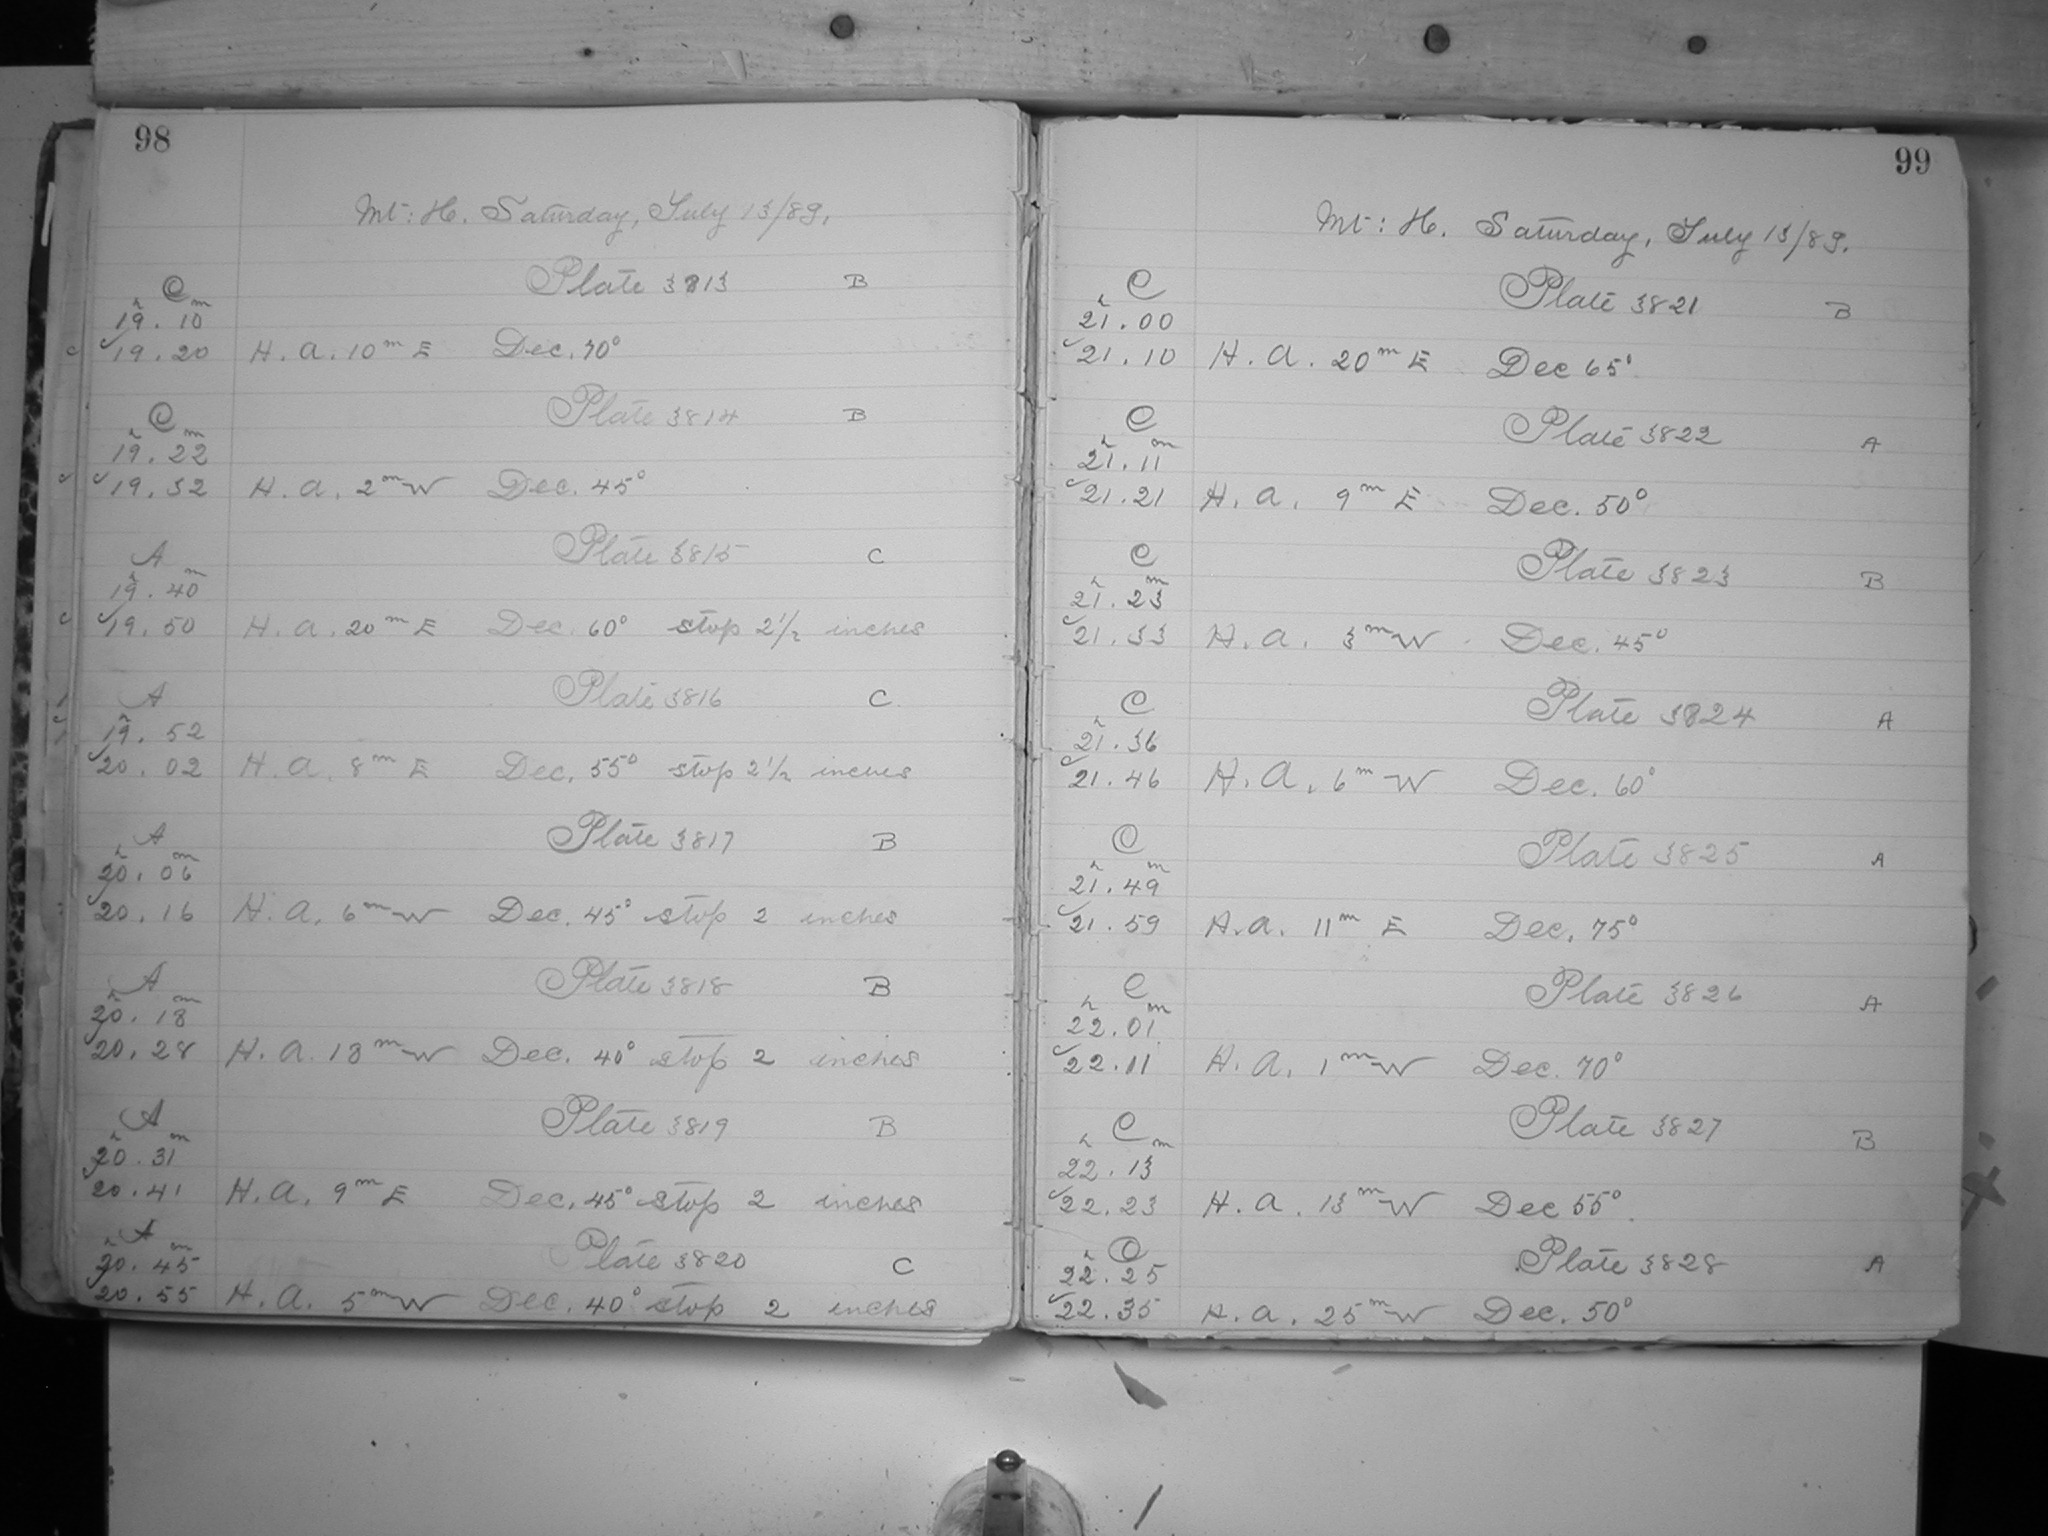 98
Mt: H. Saturday, July 13/89.
C Plate 3813 B
19h. 10m
c ✓19. 20 H. A. 10m E Dec. 70°
C Plate 3814 B
19h. 22m
✓ ✓19. 32 H. A. 2m W Dec. 45°
A Plate 3815 C
19h. 40m
c ✓19. 50 H. A. 20m E Dec. 60° stop 2 1/2 inches
A Plate 3816 C
19h. 52
✓20. 02 H. A. 8m E Dec. 55° stop 2 1/2 inches
A Plate 3817 B
20h. 06m
✓20. 16 H. A. 6m W Dec. 45° stop 2 inches
A Plate 3818 B
20h. 18m
✓20. 28 H. A. 18m W Dec. 40° stop 2 inches
A Plate 3819 B
20h. 31m
✓20. 41 H. A. 9m E Dec. 45° stop 2 inches
A Plate 3820 C
20h. 45m
✓20. 55 H. A. 5m W Dec. 40° stop 2 inches
99
Mt: H. Saturday, July 13/89.
C Plate 3821 B
21h. 00
✓21. 10 H. A. 20m E Dec 65°
C Plate 3822 A
21h. 11m
✓21. 21 H. A. 9m E Dec. 50°
C Plate 3823 B
21h. 23m
✓21. 33 H. A. 3m W Dec. 45°
C Plate 3824 A
21h. 36
✓21. 46 H. A. 6m W Dec. 60°
C Plate 3825 A
21h. 49m
✓21. 59 H. A. 11m E Dec. 75°
C Plate 3826 A
22h. 01m
✓22. 11 H. A. 1m W Dec. 70°
C Plate 3827 B
22h. 13m
✓22. 23 H. A. 13m W Dec 55°
C Plate 3828 A
22h. 25
✓22. 35 H. A. 25m W Dec. 50°